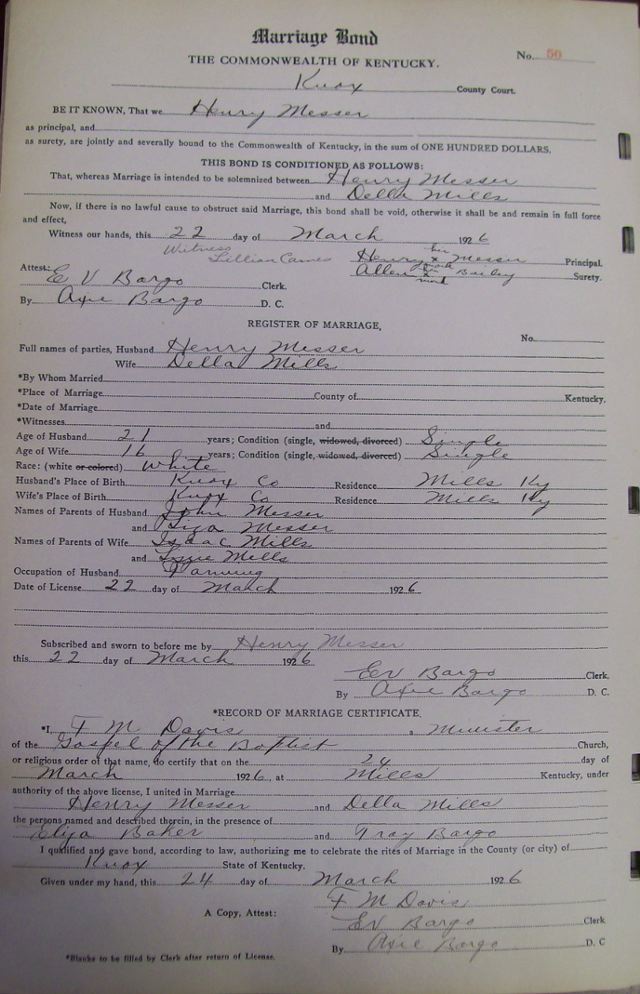 Marriage Bond
No. 50
THE COMMONWEALTH OF KENTUCKY.
Knox County Court.
BE IT KNOWN, That we Henry Messer
as principal, and
as surety, are jointly and severally bound to the Commonwealth of Kentucky, in the sum of ONE HUNDRED DOLLARS,
THIS BOND IS CONDITIONED AS FOLLOWS:
That, whereas Marriage is intended to be solemnized between Henry Messer
and Della Mills
Now, if there is no lawful cause to obstruct said Marriage, this bond shall be void, otherwise it shall be and remain in full force
and effect,
Witness our hands, this 22 day of March 1926
Witness Lillian
Henry his x mark Messer Principal.
Allen his x mark Bailey Surety.
Attest: E V Bargo Clerk.
By Axie Bargo D. C.
REGISTER OF MARRIAGE,
No.
Full names of parties, Husband Henry Messer
Wife Della Mills
*By Whom Married
*Place of Marriage County of Kentucky.
*Date of Marriage
*Witnesses and
Age of Husband 21 years; Condition (single, widowed, divorced) Single
Age of Wife 16 years; Condition (single, widowed, divorced) Single
Race: (white or colored) White
Husband's Place of Birth Knox Co Residence Mills Ky
Wife's Place of Birth Knox Co Residence Mills Ky
Names of Parents of Husband John Messer
and Liza Messer
Names of Parents of Wife Isaac Mills
and Mills
Occupation of Husband Farming
Date of License 22 day of March 1926
Subscribed and sworn to before me by Henry Messer
this 22 day of March 1926
E V Bargo Clerk.
By Axie Bargo D. C.
*RECORD OF MARRIAGE CERTIFICATE,
*I, F M Davis, Minister
of the Gospel of the Baptist Church,
or religious order of that name, do certify that on the 24 day of
March 1926, at Mills Kentucky, under
authority of the above license, I united in Marriage
Henry Messer and Della Mills
the persons named and described therein, in the presence of
Eliza Baker and Tray Bargo
I qualified and gave bond, according to law, authorizing me to celebrate the rites of Marriage in the County (or city) of
Knox State of Kentucky.
Given under my hand, this 24 day of March 1926
F M Davis
A Copy, Attest: E V Bargo Clerk
By Axie Bargo D. C
*Blanks to be filled by Clerk after return of License.